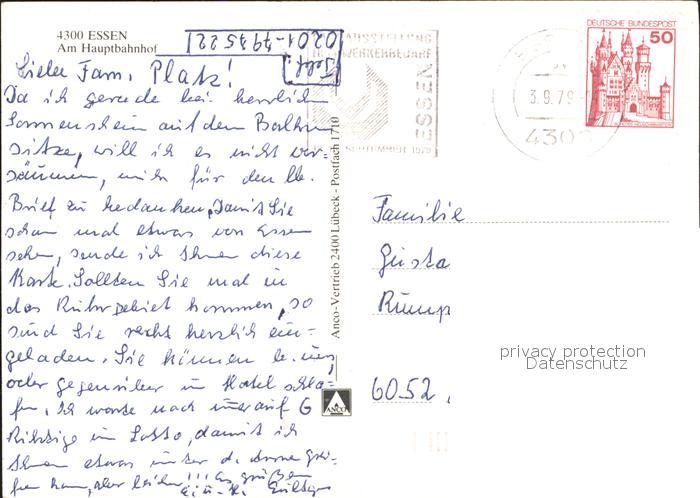 4300 ESSEN
Am Hauptbahnhof
Telef.
0201-797522
Liebe Fam. Platz!
Da ich gerade bei herrlichem
Sonnenschein auf dem Balkon
sitze, will ich es nicht ver-
säumen, mich für den lb.
Brief zu bedanken, Damit Sie
schon mal etwas von Essen
sehen, sende ich Ihnen diese
Karte. Sollten Sie mal in
das Ruhrgebiet kommen, so
sind Sie recht herzlich ein-
geladen. Sie können b. uns
oder gegenüber im Hotel schla-
fen, Ich warte noch immer auf 6
Richtige im Lotto, damit ich
Ihnen etwas unter d. Arme grei-
fen kann, aber leider!!! Es grüßen
Anco-Vertrieb 2400 Lübeck - Postfach 1710
ANCO
AUSSTELLUNG
ESSEN
SEPTEMBER 1979
3.9.79
430
DEUTSCHE BUNDESPOST
50
Familie
Gusta
Rump
6052,
privacy protection
Datenschutz